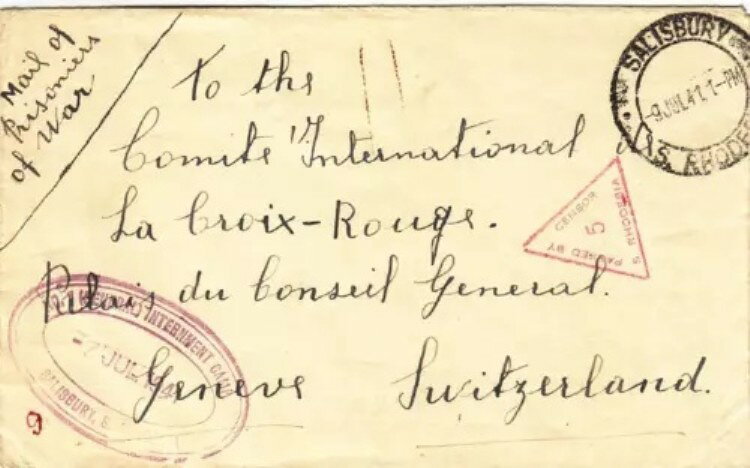 Mail of
Prisoniers
of War
To the
Comité International d
La Croix-Rouge.
Palais du Conseil General.
Genève Switzerland.
SALISBURY
-9 JUL 41. 1-PM
S. RHODE
PASSED BY
CENSOR
5
S. RHODESIA
INTERNMENT CAMP
-7 JUL 194
SALISBURY, S
9